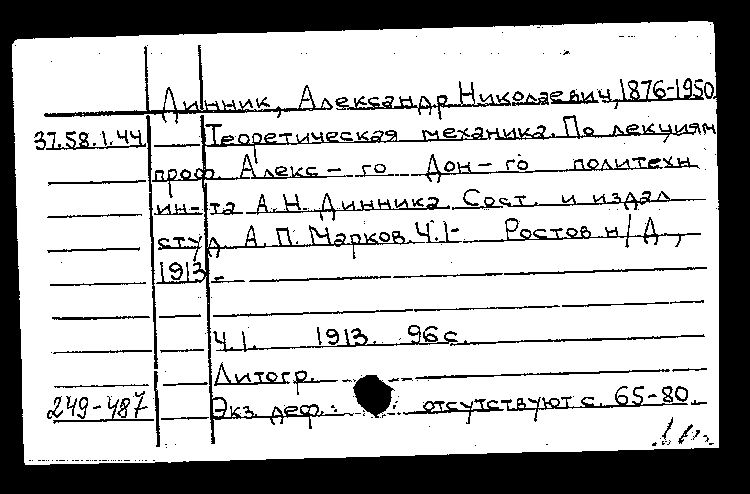 Динник, Александр Николаевич, 1876-1950
37.58.1.44 Теоретическая механика. По лекциям
проф. Алекс-го Дон-го политехн.
ин-та А.Н. Динника. Сост. и издал
студ. А.П. Марков. Ч.I- Ростов н/Д,
1913-
Ч.I. 1913. 96 с.
Литогр.
249-487 Экз. деф.: отсутствуют с. 65-80.